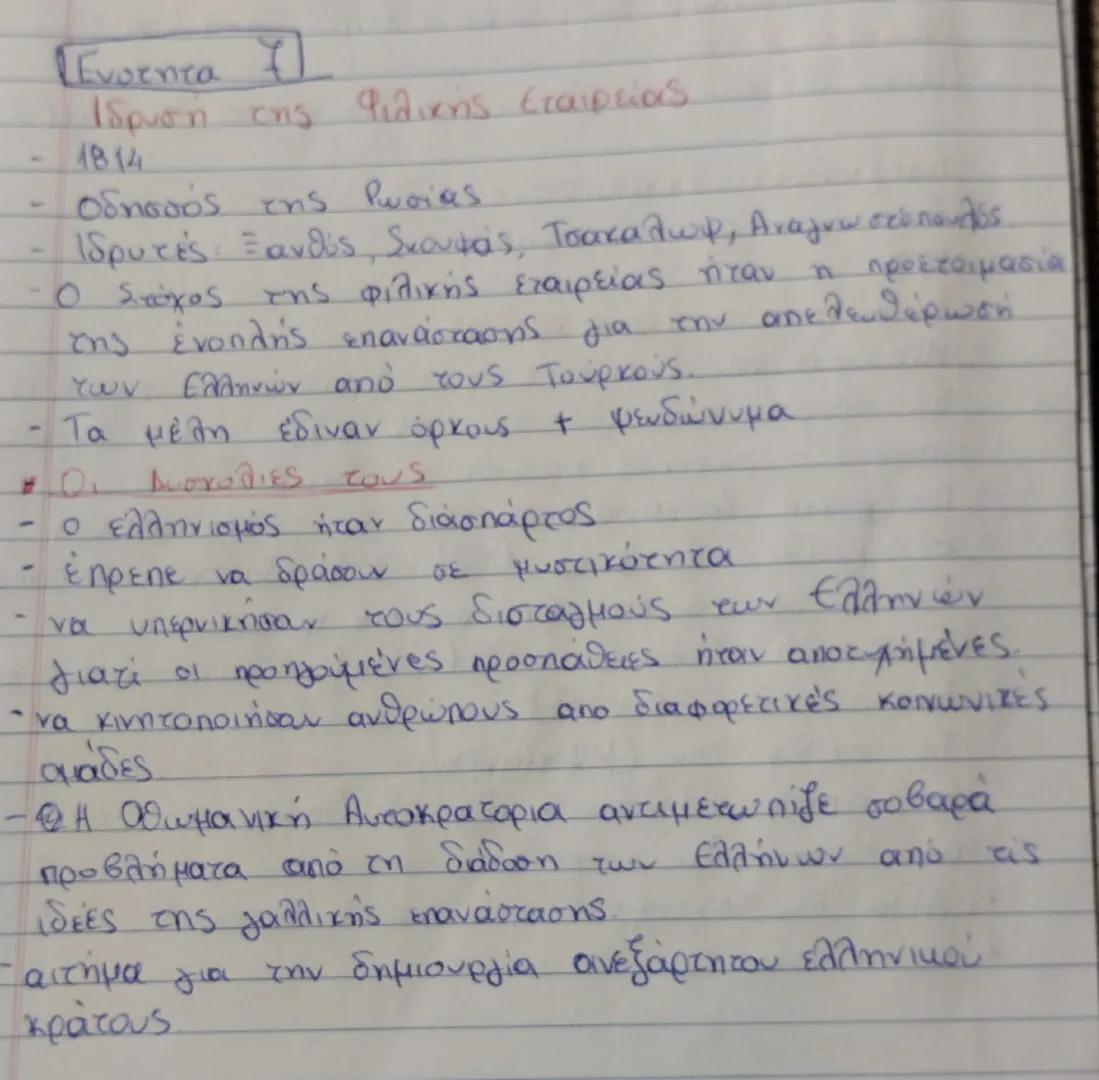 Ενότητα 7
Ίδρυση της Φιλικής Εταιρείας
- 1814
- Οδησσός της Ρωσίας
- Ιδρυτές: Ξανθός, Σκουφάς, Τσακαλωφ, Αναγνωστόπουλός
- Ο Στόχος της φιλικής εταιρείας ήταν η προετοιμασία
της ένοπλής επανάστασης για την απελευθέρωσή
των Ελλήνών από τους Τούρκούς.
- Τα μέλη έδιναν όρκους + ψευδώνυμα
Οι Δυσκολίες τους
- ο ελληνισμός ήταν διάσπάρτος
- έπρεπε να δράσουν σε μυστικότητα
- να υπερνικήσαν τους δισταγμούς των Ελλήνών
γιατί οι προηγούμένες προσπάθειες ήταν αποτυχήμένες.
- να κινητοποιήσαν ανθρώπους απο διαφορετικές κοινωνικές
ομάδες
- Η Οθωμανική Αυτοκρατορια αντιμετωπιζε σοβαρά
προβλήματα από τη διάδοση των Ελλήνων από τις
ιδέες της γαλλικής επανάστασης.
- αιτήμα για την δημιουργία ανεξάρτητου ελληνικού
κράτους